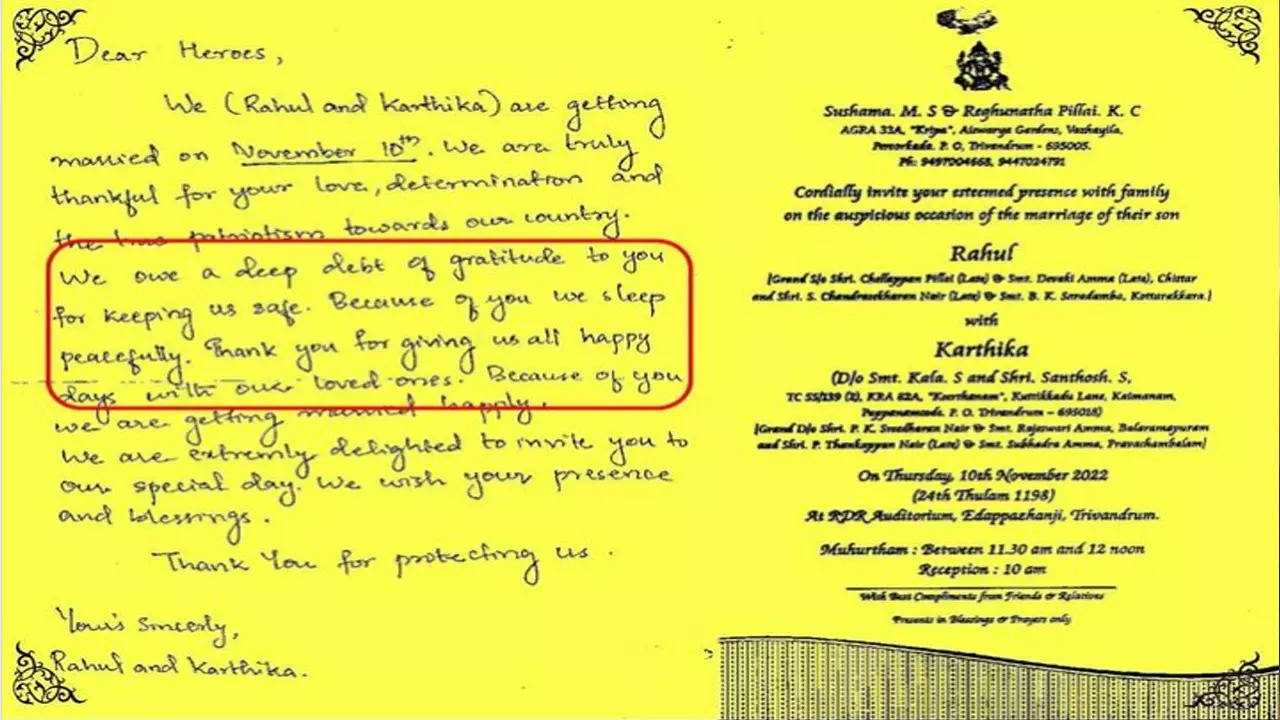 Dear Heroes,
We (Rahul and Karthika) are getting
married on November 10th. We are truly
thankful for your love, determination and
the true patriotism towards our country.
We owe a deep debt of gratitude to you
for keeping us safe. Because of you we sleep
peacefully. Thank you for giving us all happy
days with our loved ones. Because of you
we are getting married happly.
We are extremly delighted to invite you to
our special day. We wish your presence
and blessings.
Thank You for protecting us.
Your's Sincerly,
Rahul and Karthika.
Sushama. M. S & Reghunatha Pillai. K. C
AGRA 32A, "Kripa", Aiswarya Gardens, Vazhayila,
Peroorkada. P. O, Trivandrum - 695005.
Ph: 9497004668, 9447024791
Cordially invite your esteemed presence with family
on the auspicious occasion of the marriage of their son
Rahul
[Grand S/o Shri. Chellappan Pillai (Late) & Smt. Devaki Amma (Late), Chittar
and Shri. S. Chandrasekharan Nair (Late) & Smt. B. K. Sreedamba, Kottarakkara.]
with
Karthika
(D/o Smt. Kala. S and Shri. Santhosh. S,
TC 55/139 (2), KRA 62A, "Keerthanam", Kuttikkadu Lane, Kaimanam,
Pappanamcode. P. O. Trivandrum – 695018)
[Grand D/o Shri. P. K. Sreedharan Nair & Smt. Rajeswari Amma, Balaramapuram
and Shri. P. Thankappan Nair (Late) & Smt. Subhadra Amma, Pravachambalam]
On Thursday, 10th November 2022
(24th Thulam 1198)
At RDR Auditorium, Edappazhanji, Trivandrum.
Muhurtham : Between 11.30 am and 12 noon
Reception : 10 am
With Best Compliments from Friends & Relatives
Presents in Blessings & Prayers only